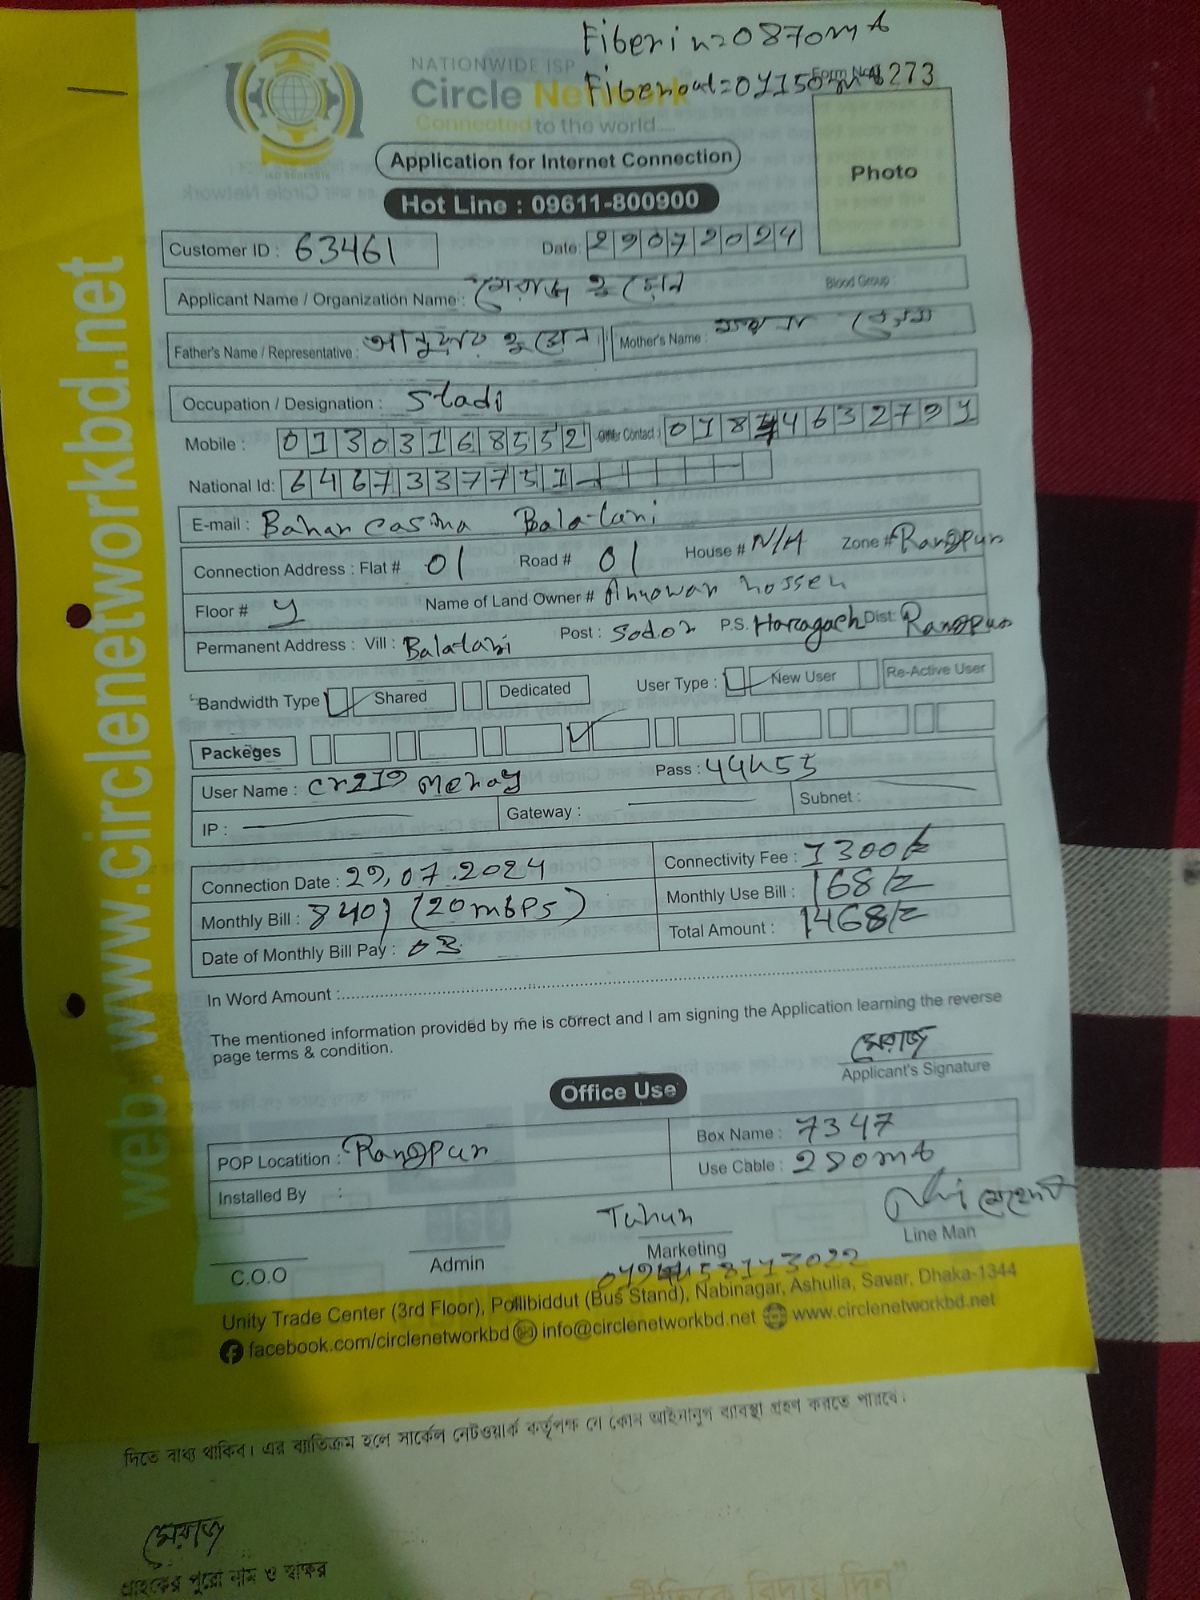 Fiber in=0870mt
NATIONWIDE ISP
Circle Network
Fiber out=0715
273
Connected to the world....
Application for Internet Connection
Photo
Hot Line : 09611-800900
Customer ID : 63461 Date: 29072024
Applicant Name / Organization Name : মেরাজ হুসেন Blood Group :
Father's Name / Representative : আনুয়ার হুসেন Mother's Name : বেগম
Occupation / Designation : Stadi
Mobile : 01303168552 Other Contact : 01844632791
National Id: 6467337751
E-mail : Bahar casna Balatari
Connection Address : Flat # 01 Road # 01 House # N/A Zone # Rangpur
Floor # Y Name of Land Owner # Anowar hossen
Permanent Address : Vill : Balatari Post : Sodor P.S. Haragach Dist: Rangpur
Bandwidth Type Shared Dedicated User Type : New User Re-Active User
Packeges
User Name : cr219 meraj Pass : 44455
IP : Gateway : Subnet :
Connection Date : 29.07.2024 Connectivity Fee : 1300/=
Monthly Bill : 840) (20mbps) Monthly Use Bill : 168/=
Date of Monthly Bill Pay : 03 Total Amount : 1468/=
In Word Amount :
The mentioned information provided by me is correct and I am signing the Application learning the reverse
page terms & condition.
মেরাজ
Applicant's Signature
Office Use
POP Locatition : Rangpur Box Name : 7347
Installed By : Use Cable : 280mt
Tuhin
C.O.O Admin Marketing Line Man
Unity Trade Center (3rd Floor), Pollibiddut (Bus Stand), Nabinagar, Ashulia, Savar, Dhaka-1344
facebook.com/circlenetworkbd info@circlenetworkbd.net www.circlenetworkbd.net
web: www.circlenetworkbd.net
দিতে বাধ্য থাকিব। এর ব্যতিক্রম হলে সার্কেল নেটওয়ার্ক কর্তৃপক্ষ যে কোন আইনানুগ ব্যবস্থা গ্রহণ করতে পারবে।
মেরাজ
গ্রাহকের পুরো নাম ও স্বাক্ষর